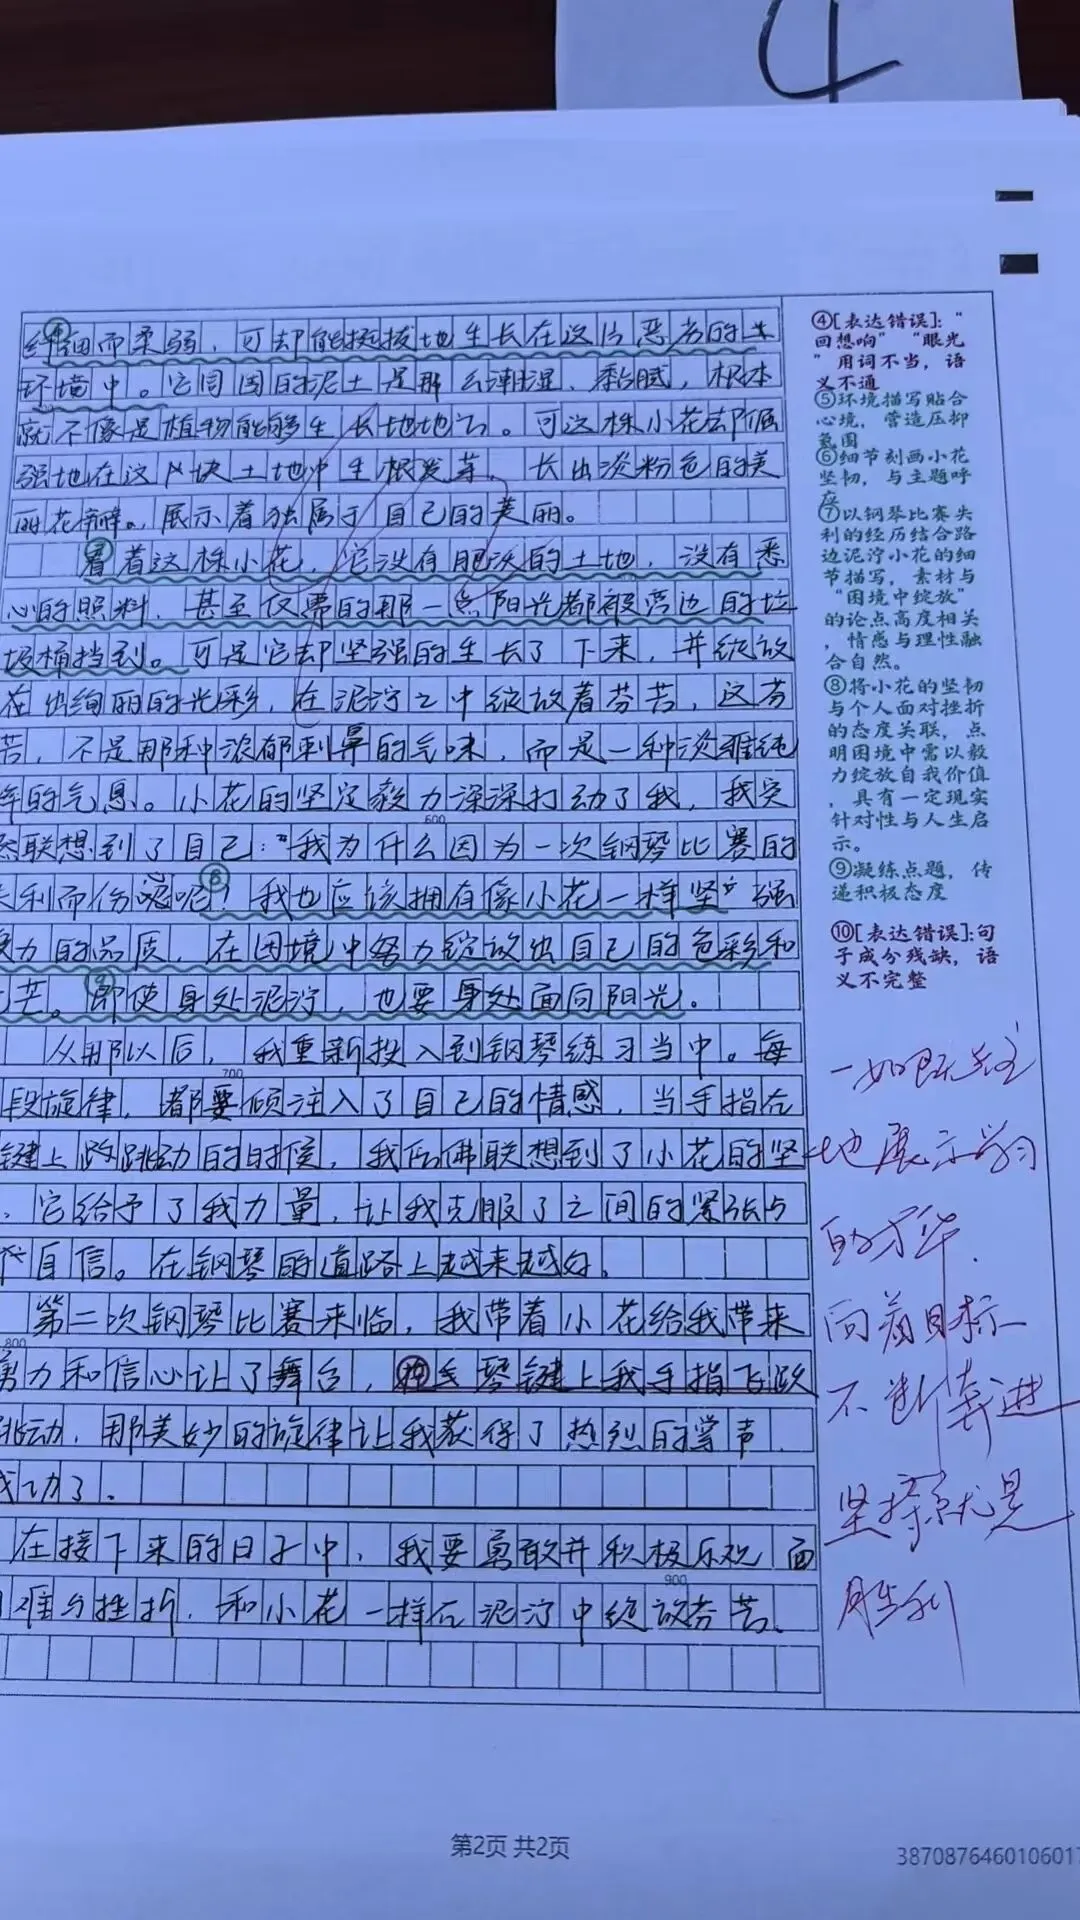 4
细而柔弱，可却能挺拔地生长在这片恶劣的
环境中。它周围的泥土是那么潮湿、黏腻，根本
就不像是植物能够生长地地方。可这株小花却倔
强地在这片块土地中生根发芽。长出淡粉色的美
丽花瓣。展示着独属于自己的美丽。
看着这株小花，它没有肥沃的土地，没有悉
心的照料，甚至仅需的那一点阳光都被旁边的垃
圾桶挡到。可是它却坚强的生长了下来，并绽放
在出绚丽的光彩，在泥泞之中绽放着芬苦，这芬
苦，不是那种浓郁刺鼻的气味，而是一种淡雅纯
的气息。小花的坚定毅力深深打动了我，我突
600
然联想到了自己："我为什么因为一次钢琴比赛的
失利而伤感呢？⑧我也应该拥有像小花一样坚强
毅力的品质，在困境中努力绽放出自己的色彩和
芒。⑨即使身处泥泞，也要身处面向阳光。
从那以后，我重新投入到钢琴练习当中。每
700
段旋律，都要倾注入了自己的情感，当手指在
键上跳动的时候，我仿佛联想到了小花的坚
，它给予了我力量，让我克服了之间的紧张与
不自信。在钢琴的道路上越来越好。
第二次钢琴比赛来临，我带着小花给我带来
800
勇力和信心让了舞台，⑩在琴键上我手指飞跃
跳动，那美妙的旋律让我获得了热烈的掌声
成功了。
在接下来的日子中，我要勇敢并积极乐观面
900
难与挫折，和小花一样在泥泞中绽放芬苦。
④[表达错误]："
回想响" "眼光
"用词不当，语
义不通
⑤环境描写贴合
心境，营造压抑
氛围
⑥细节刻画小花
坚韧，与主题呼
应
⑦以钢琴比赛失
利的经历结合路
边泥泞小花的细
节描写，素材与
"困境中绽放"
的论点高度相关
，情感与理性融
合自然。
⑧将小花的坚韧
与个人面对挫折
的态度关联，点
明困境中需以毅
力绽放自我价值
，具有一定现实
针对性与人生启
示。
⑨凝练点题，传
递积极态度
⑩[表达错误]:句
子成分残缺，语
义不完整
一如既往
地展示学习
的才华.
向着目标
不断奔进
坚持就是
胜利
第2页 共2页
3870876460106017